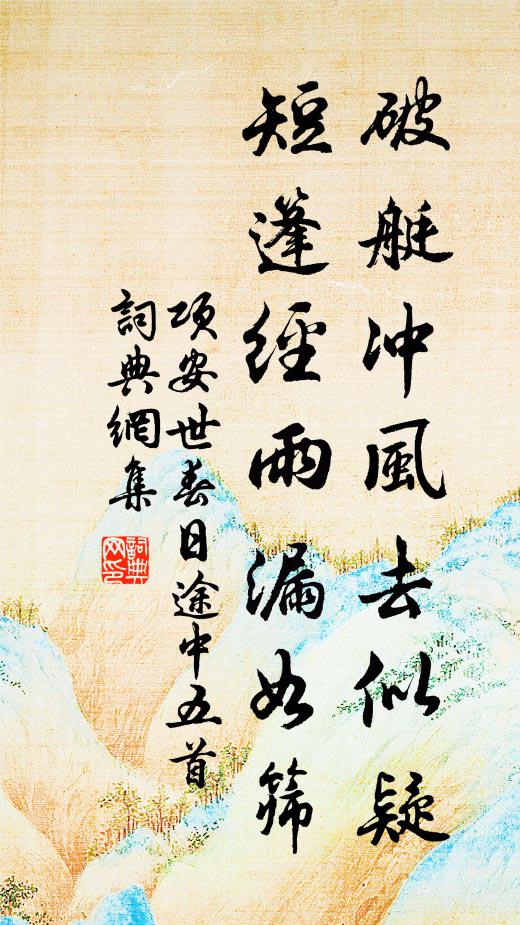 破艇冲風去似疑
短篷經雨漏如篩
項安世春日途中五首
詞典網集
詞典
网印